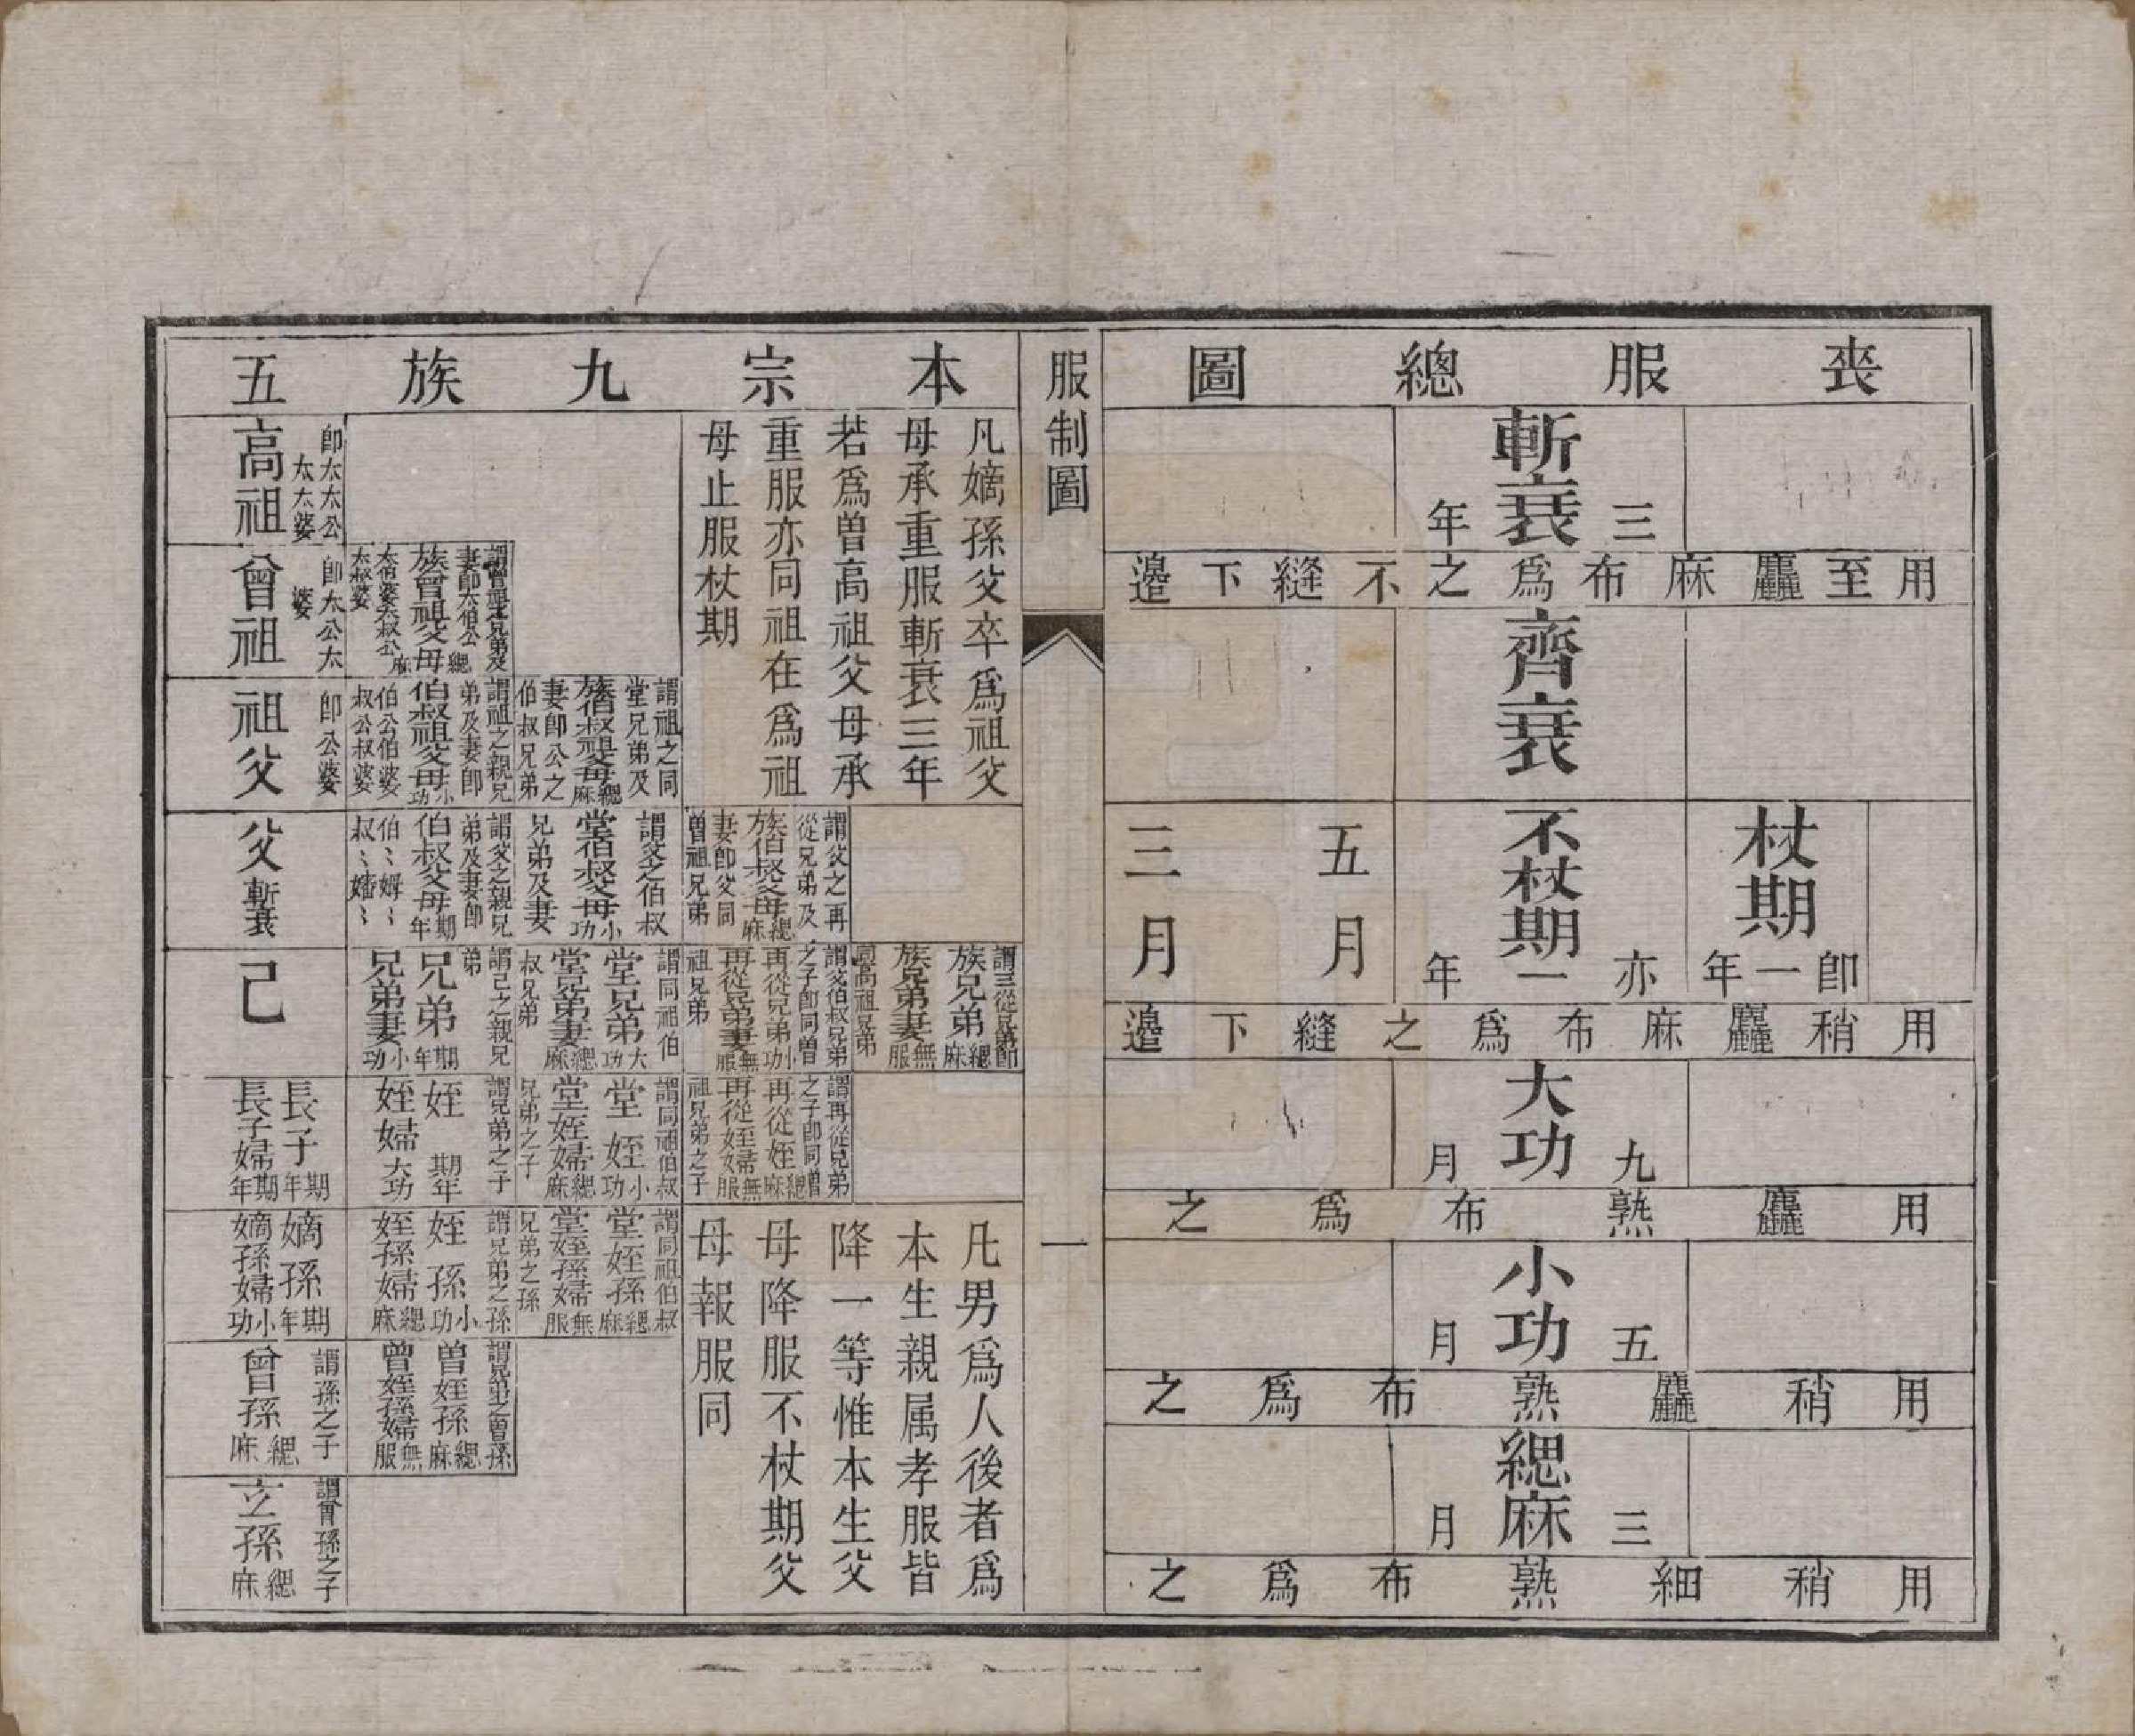 喪服總圖
斬衰
三年
用至麤麻布爲之不縫下邉
齊衰
杖期
即一年
不杖期
亦一年
五月
三月
用稍麤麻布爲之縫下邉
大功
九月
用麤熟布爲之
小功
五月
用稍麤熟布爲之
緦麻
三月
用稍細熟布爲之
服制圖
一
本宗九族五
凡嫡孫父卒爲祖父
母承重服斬衰三年
若爲曽高祖父母承
重服亦同祖在爲祖
母止服杖期
即太太公
太太婆
高祖
謂曾祖之兄弟及
妻即太伯公
族曾祖父母緦麻
太伯婆太叔公
太叔婆
即太公太
婆
曾祖
謂祖之同
堂兄弟及
族伯叔祖父母緦麻
妻即公之
伯叔兄弟
謂祖之親兄
弟及妻即
伯叔祖父母小功
伯公伯婆
叔公叔婆
即公婆
祖父
謂父之再
從兄弟及
族伯叔父母緦麻
妻即父同
曽祖兄弟
謂父之伯叔
堂伯叔父母小功
兄弟及妻
謂父之親兄
弟及妻即
伯叔父母期年
伯〻姆〻
叔〻嬸〻
父斬衰
謂三從兄弟即
族兄弟緦麻
族兄弟妻無服
同高祖兄弟
謂父伯叔兄弟
之子即同曽
再從兄弟小功
再從兄弟妻無服
祖兄弟
謂同祖伯
堂兄弟大功
堂兄弟妻緦麻
叔兄弟
謂己之親兄
弟
兄弟期年
兄弟妻小功
己
謂再從兄弟
之子即同曽
再從姪緦麻
再從姪婦無服
祖兄弟之子
謂同祖伯叔
堂姪小功
堂姪婦緦麻
兄弟之子
謂兄弟之子
姪期年
姪婦大功
長子期年
長子婦期年
謂同祖伯叔
堂姪孫緦麻
堂姪孫婦無服
兄弟之孫
謂兄弟之孫
姪孫小功
姪孫婦緦麻
嫡孫期年
嫡孫婦小功
謂兄弟之曽孫
曽姪孫緦麻
曽姪孫婦無服
謂孫之子
曾孫緦麻
謂曾孫之子
玄孫緦麻
凡男爲人後者爲
本生親属孝服皆
降一等惟本生父
母降服不杖期父
母報服同